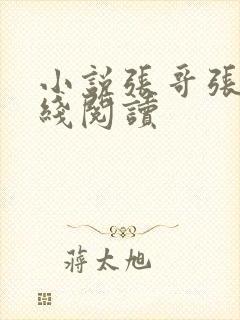 小説張哥張
綫閱讀
蔣太旭